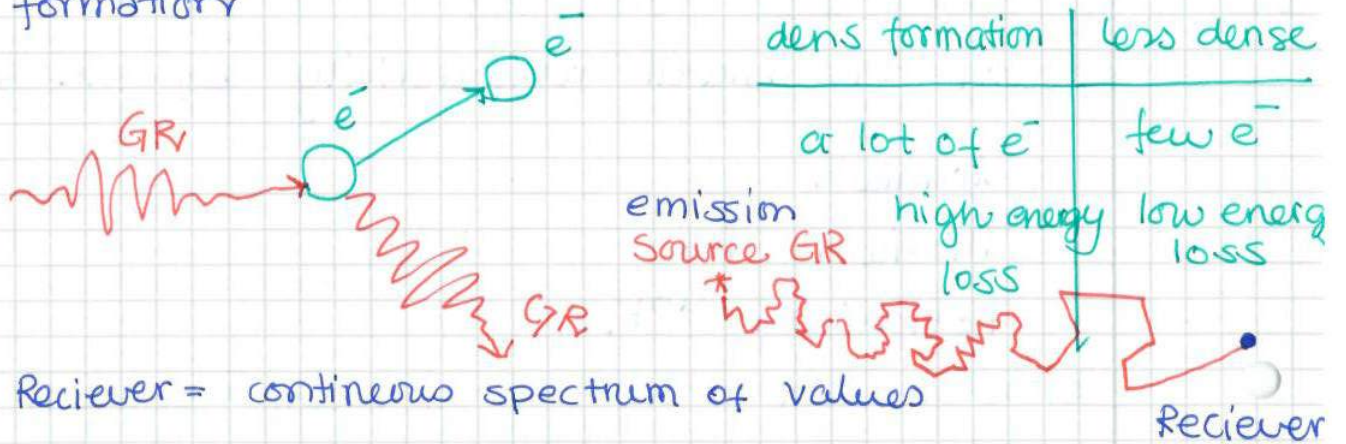 formation
e⁻
dens formation | less dense
GR
e⁻
a lot of e⁻ | few e⁻
emission
high energy loss | low energ loss
Source GR
GR
Reciever = contineous spectrum of values
Reciever